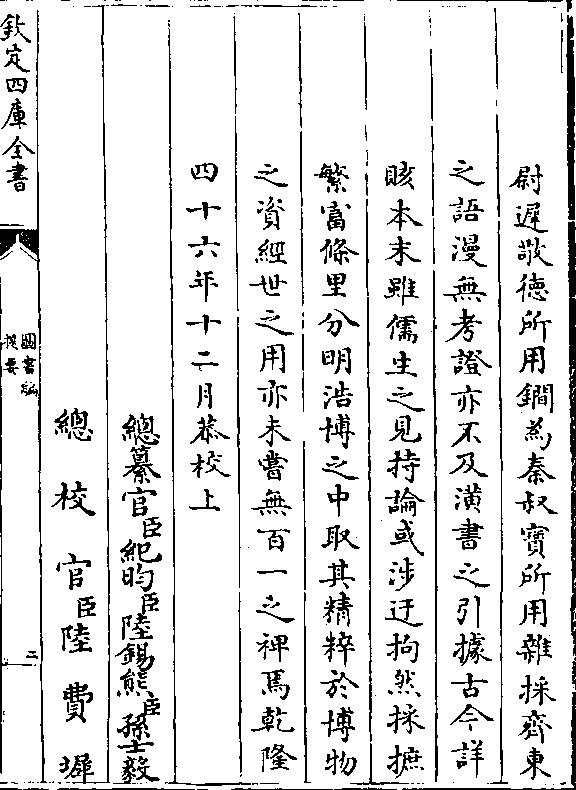 尉遲敬德所用鐧為秦叔寶所用雜採齊東
之語漫無考證亦不及潢書之引據古今詳
賅本末雖儒生之見持論或涉迂拘然採摭
繁富條里分明浩博之中取其精粹於博物
之資經世之用亦未嘗無百一之裨焉乾隆
四十六年十二月恭校上
總纂官臣紀昀臣陸錫熊臣孫士毅
總校官臣陸費墀
欽定四庫全書
圖書編
提要
二